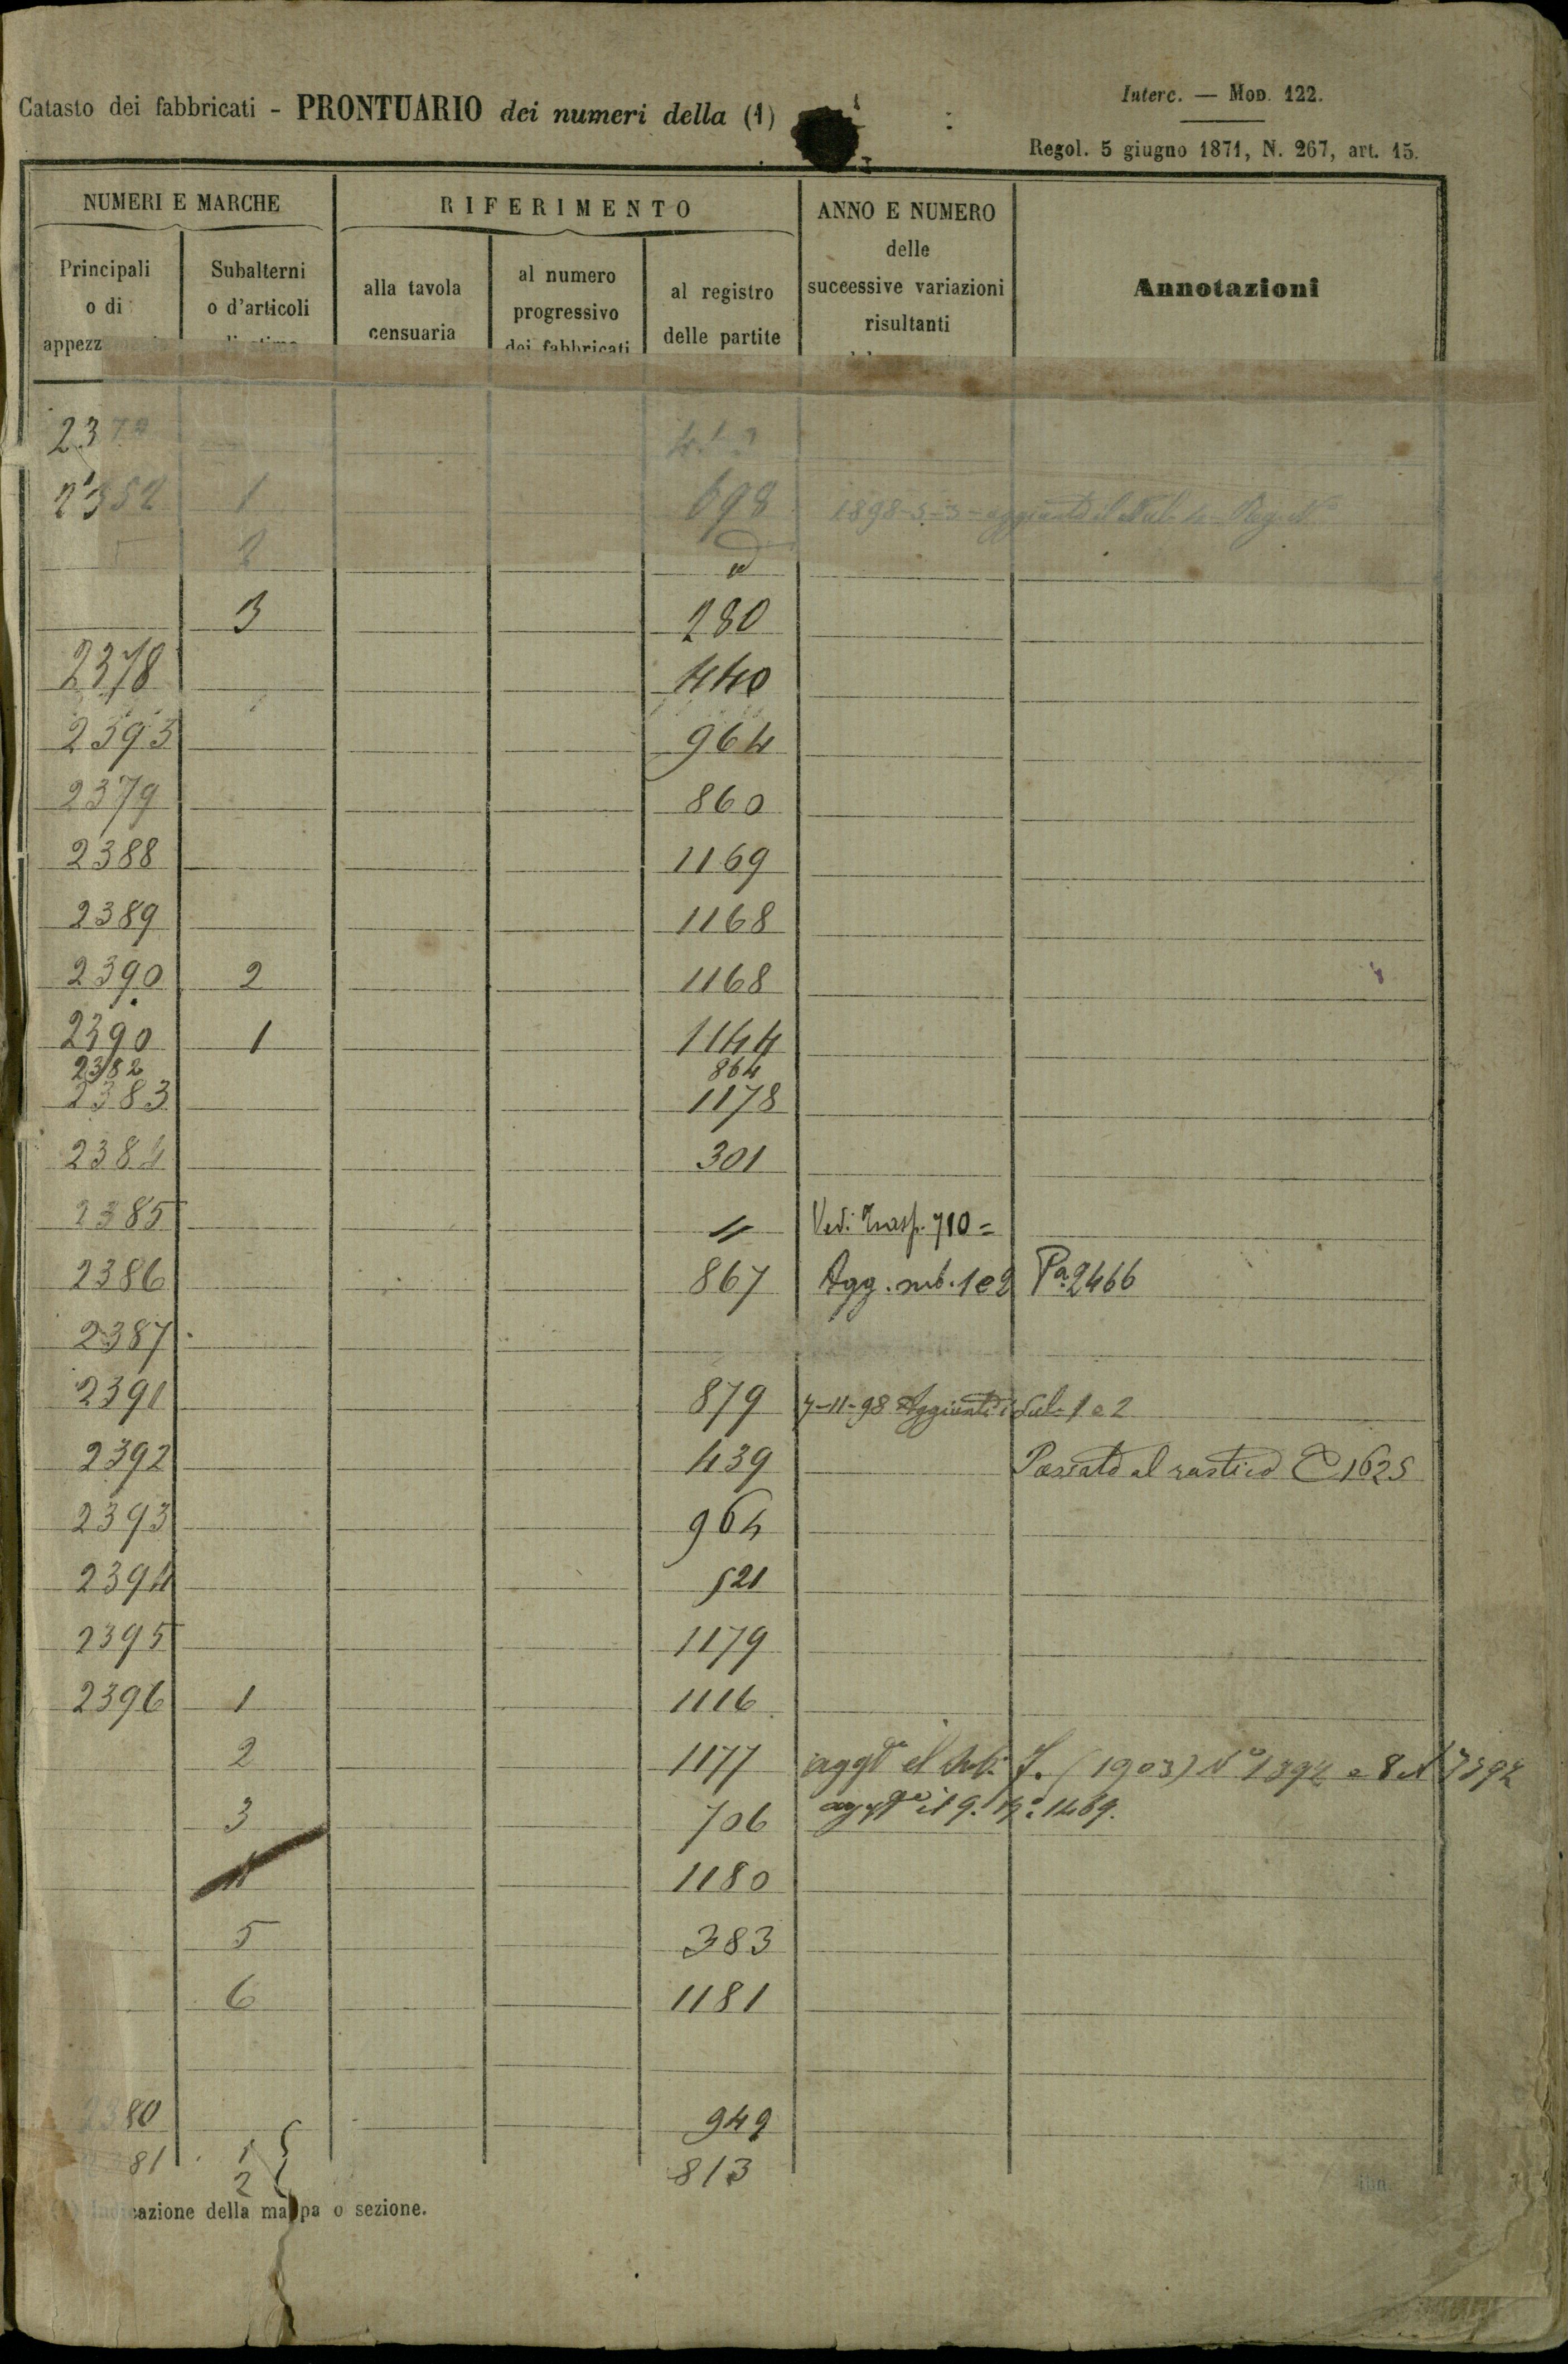 Catasto dei fabbricati - PRONTUARIO dei numeri della (1)
Interc. — Mod. 122.
Regol. 5 giugno 1871, N. 267, art. 15.
NUMERI E MARCHE
RIFERIMENTO
ANNO E NUMERO
delle
successive variazioni
risultanti
Annotazioni
Principali
o di
appezz
Subalterni
o d'articoli
alla tavola
censuaria
al numero
progressivo
dei fabbricati
al registro
delle partite
2352 1 698 1898-5-3- aggiunto il Sub 4
2
3 280
2378 440
2393 964
2379 860
2388 1169
2389 1168
2390 2 1168
2390 1 1144
2382 864
2383 1178
2384 301
2385 " Vedi Trasp. 710=
2386 867 Agg. sub. 1 e 2 Pa. 2466
2387
2391 879 7-11-98 Aggiunti i Sub 1 e 2
2392 439 Passato al rustico 1625
2393 964
2394 521
2395 1179
2396 1 1116
2 1177 aggto il Sub. 7. (1903) No 1394 e 8 al 1394
3 706 aggto il 9. No. 1469.
4 1180
5 383
6 1181
2380 949
81 1 813
2
cazione della mappa o sezione.